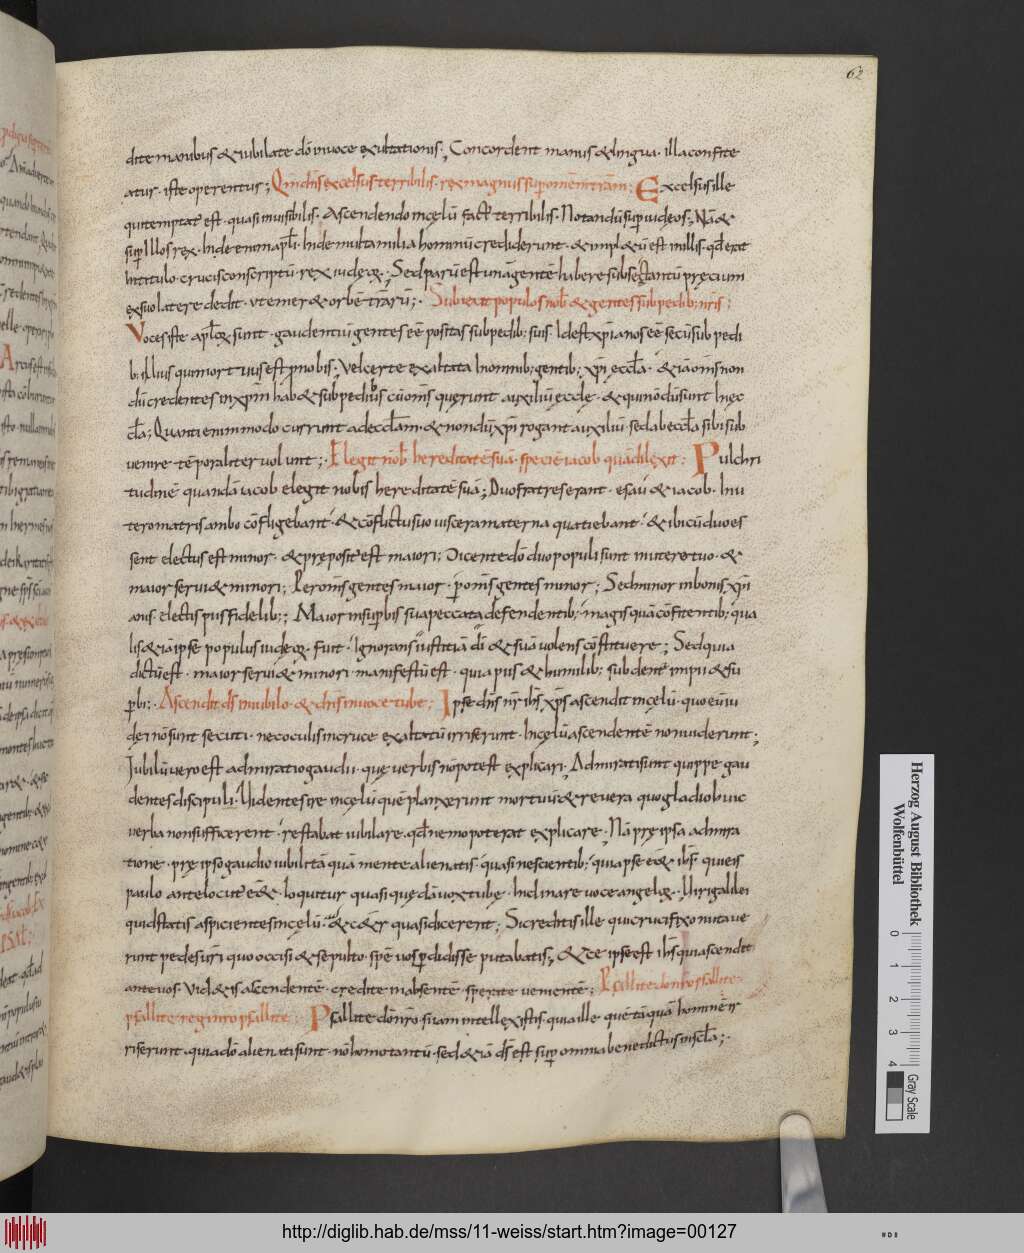 62
dite manibus & iubilate dō in uoce exultationis ; Concordent manus & lingua · illa confite
atur · iste operentur ; Qm̄ dn̄s excelsus terribilis · rex magnus sup omnem trām ; Excelsus ille
qui temptat' est · quasi inuisibilis · Ascendendo in cęlū fact' terribilis · Notandū sup iudęos ; Nā &
sup Illos rex · Inde enim apłi · Inde multa milia hominū crediderunt · & impl&ū est in illis · qd̄ erat
In titulo crucis conscriptū · rex iudęoꝝ ; Sed parū est unā gentē habere sub se tantū pręcium
ex suo latere dedit · ut emer& orbē trārū ; Subiecit populos nob' & gentes sub pedib; nr̄is ;
Voces iste apłoꝝ sunt · gaudentiū gentes eē positas sub pedib; suis · Id est xp̄ianos eē secū sub pedi
b; illius qui mortuus est p nobis ; Vel certe exaltata In omnib; gentib; xp̄i ęccła · & iā om̄s non
dū credentes in xp̄m hab& sub pedibus cū om̄s quęrunt auxiliū ęcclę · & qui nōdū sunt In ęc
cła ; Quanti enim modo currunt ad eccłam · & nondū xp̄i rogant auxiliū · sed ab eccła sibi sub
uenire tēporaliter uolunt ; Elegit nob' hereditatē suā · speciē iacob quā dilexit ; Pulchri
tudinē quandā iacob elegit nobis hereditatē suā ; Duo fratres erant · esau & iacob · In u
tero matris ambo cōfligebant · & cōflictu suo uiscera materna quatiebant · & ibi cū duo es
sent electus est minor · & pręposit' est maiori ; Dicente dō duo populi sunt in utero tuo · &
maior serui& minori ; Per om̄s gentes maior · p om̄s gentes minor ; Sed minor in bonis xp̄i
anis · electis piis fidelib; ; Maior in supbis sua peccata defendentib; magis quā cōfitentib; qua
lis & iā ipse populus iudęoꝝ fuit · Ignorans iustitiā dī & suā uolens cōstituere ; Sed quia
dictū est · maior serui& minori · manifestū est · quia piis & humilib; subdent' impii & su
pbi ; Ascendit dš in iubilo · & dn̄s in uoce tubę ; Ipse dn̄s nr̄ ih̄s xp̄s ascendit in cęlū · quo eū iu
dęi nō sunt secuti · nec oculis in cruce exaltatū irriserunt · In cęlū ascendentē non uiderunt ;
Iubilū uero est admiratio gaudii · que uerbis nō potest explicari ; Admirati sunt quippe gau
dentes discipuli · Uidentes ire in cęlū quē planxerunt mortuū & reuera quo gladio huic
uerba non sufficerent · restabat iubilare · qd̄ nemo poterat explicare · Nā pre ipsa admira
tione · pre ipso gaudio iubilitā quā mente alienatis · quasi nescientib; quia pse e& ih̄s · qui eis
paulo ante locut' e& · loquitur quasi quędā uox tubę · Inclinare uoce angeloꝝ · Uiri galilei
quid statis aspicientes in cęlū · & c&r quasi dicerent ; Si credetis ille qui crucifixo nutaue
runt pedes uri quo occisi & sepulto · spē uos pdidisse putabatis ; & Te ipse est ih̄s qui ascendit
ante uos · Vid&is ascendentē · credite in absentē · sperate uenientē ; Psallite dō nr̄o psallite
psallite regi nr̄o psallite ; Psallite dō nr̄o si iam intellexistis quia ille quē tā quā hominē ir
riserunt · qui a dō alienati sunt · nō homo tantū · sed & iā dš est sup omnia benedictus in scła ;
Herzog August Bibliothek
Wolfenbüttel
0 1 2 3 4
Gray Scale
http://diglib.hab.de/mss/11-weiss/start.htm?image=00127